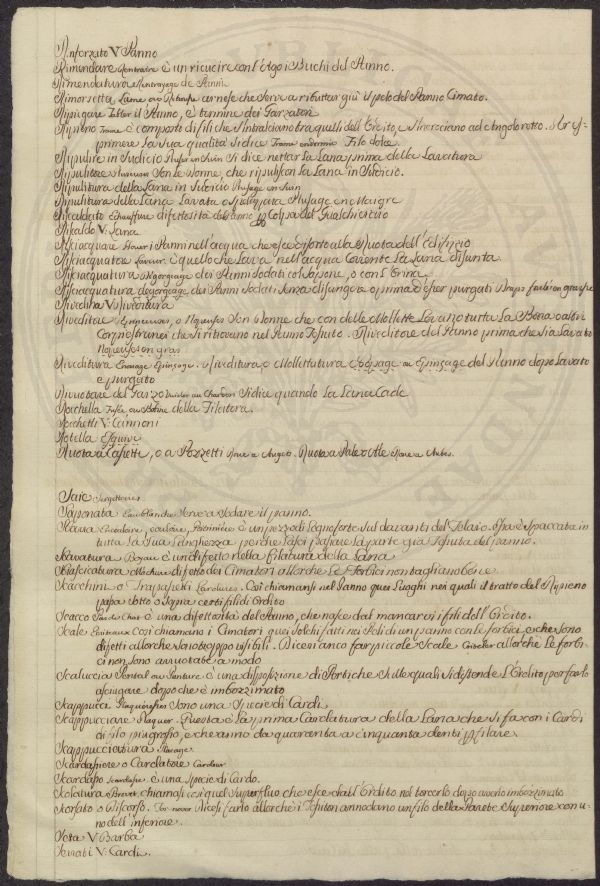 Rinforzato V. Panno
Rimendare Rentraire è un ricucire con l'Ago i Buchi del Panno.
Rimendatura Rentrayage de Pann
Rimorsetta Lame ou Rebrousse arnese che serve a ributtar giù il pelo del Panno Cimato.
Ripiegare Plier il Panno, è termine dei Garzatori
Ripieno Trame è composto di fili che s'intralciano tra quelli dell'Ordito, e s'incrociano ad angolo retto. Per es-
primere la sua qualità si dice Trame Filo dolce.
Ripulire in Sudicio en Suin Si dice nettar la Lana prima della Lavatura
Ripulitore Son le Donne, che ripuliscon la Lana in Sudicio.
Ripulitura della Lana in Sudicio Plusage en Suin
Ripulitura della Lana Lavata o Sgrassata Plusage en Maigre
Riscaldato Echauffure difettosità del Panno p Colpa del Gualchieraio
Riscaldo V. Lana
Risciacquare Laver i Panni nell'acqua che esce di sotto alla Ruota dell'Edifizio
Risciacquatore Laveur. è quello che Lava nell'acqua Corrente La Lana disunta.
Risciacquatura Degorgeage dei Panni Sodati col Sapone, o con l'Orina
Risciacquatura degorgeage dei Panni Sodati Senza disungere o prima d'esser purgati Draps foulés en graisse
Riveditura V. Riveditura
Riveditore Epinceuses, o Noqueuses Son Donne che con delle Mollette Levan tutta La Borra o altri
Corpi estranei che si ritrovano nel Panno Tessuto. Riveditore del Panno prima che sia Lavato
Noqueuses en gras
Riveditura Enouage Epinçage. Riveditura o Mollettatura Epinçage du Panno dopo Lavato
e purgato
Rivoltare del Garzo Si dice quando La Lana Cade
Rocchella Fusée ou Bobine della Filatora.
Rocchetti V. Cannoni
Rotella Esquive
Ruota a Cassette, o a Pozzetti Roue a Augets. Ruota a Pale o Ale Roue a Aubes.
Saie Sergetteries
Saponata Eau blanche Serve a Sodare il panno.
Poitrinière è un pezzo di Legno forte sul davanti del Telaio. Essa è spaccata in
tutta la sua Lunghezza perche Lasci passare la parte già Tessuta del panno.
Sbavatura Boyau è un difetto nella filatura della Lana
Sbiascicatura Machure difetto dei Cimatori allorche le Forbici non tagliano bene
Scacchini o Trapassetti Così chiamansi nel Panno quei Luoghi nei quali il tratto del Ripieno
passa sotto o sopra certi fili di Ordito
Scacco Pas de Chat è una difettosità del Panno, che nasce dal mancarvi i fili dell'Ordito.
Scale Così chiamano i Cimatori quei Solchi fatti nei Peli di un panno con le forbici, e che sono
difetti allorche son troppo visibili. Dicesi anco far piccole Scale allorche le forbi-
ci non sono arruotate a modo
Scaluccia Pental ou Penture è una disposizione di Pertiche Sulle quali si distende L'Ordito per farlo
asciugare dopo che è imbozzimato
Scappucci Plaqueresses Sono una Specie di Cardi.
Scappucciare Plaquer. Questa è La prima Cardatura della Lana che si fa con i Cardi
di filo più grosso, e che anno da quaranta a cinquanta denti p filare.
Scappucciatura Plaxage.
Scardassiere o Cardatore Cardeur
Scardasso Scardasse è una Specie di Cardo.
Scolatura chiamasi così quel Superfluo che esce dall'Ordito nel torcerlo dopo averlo imbozzimato
Scorsato o Discorso. Pas noué Dicesi farlo allorchè i Tessitori annodano un filo della Parete Superiore con u-
no dell'inferiore.
Seta V. Barba
Serrati V. Cardi.